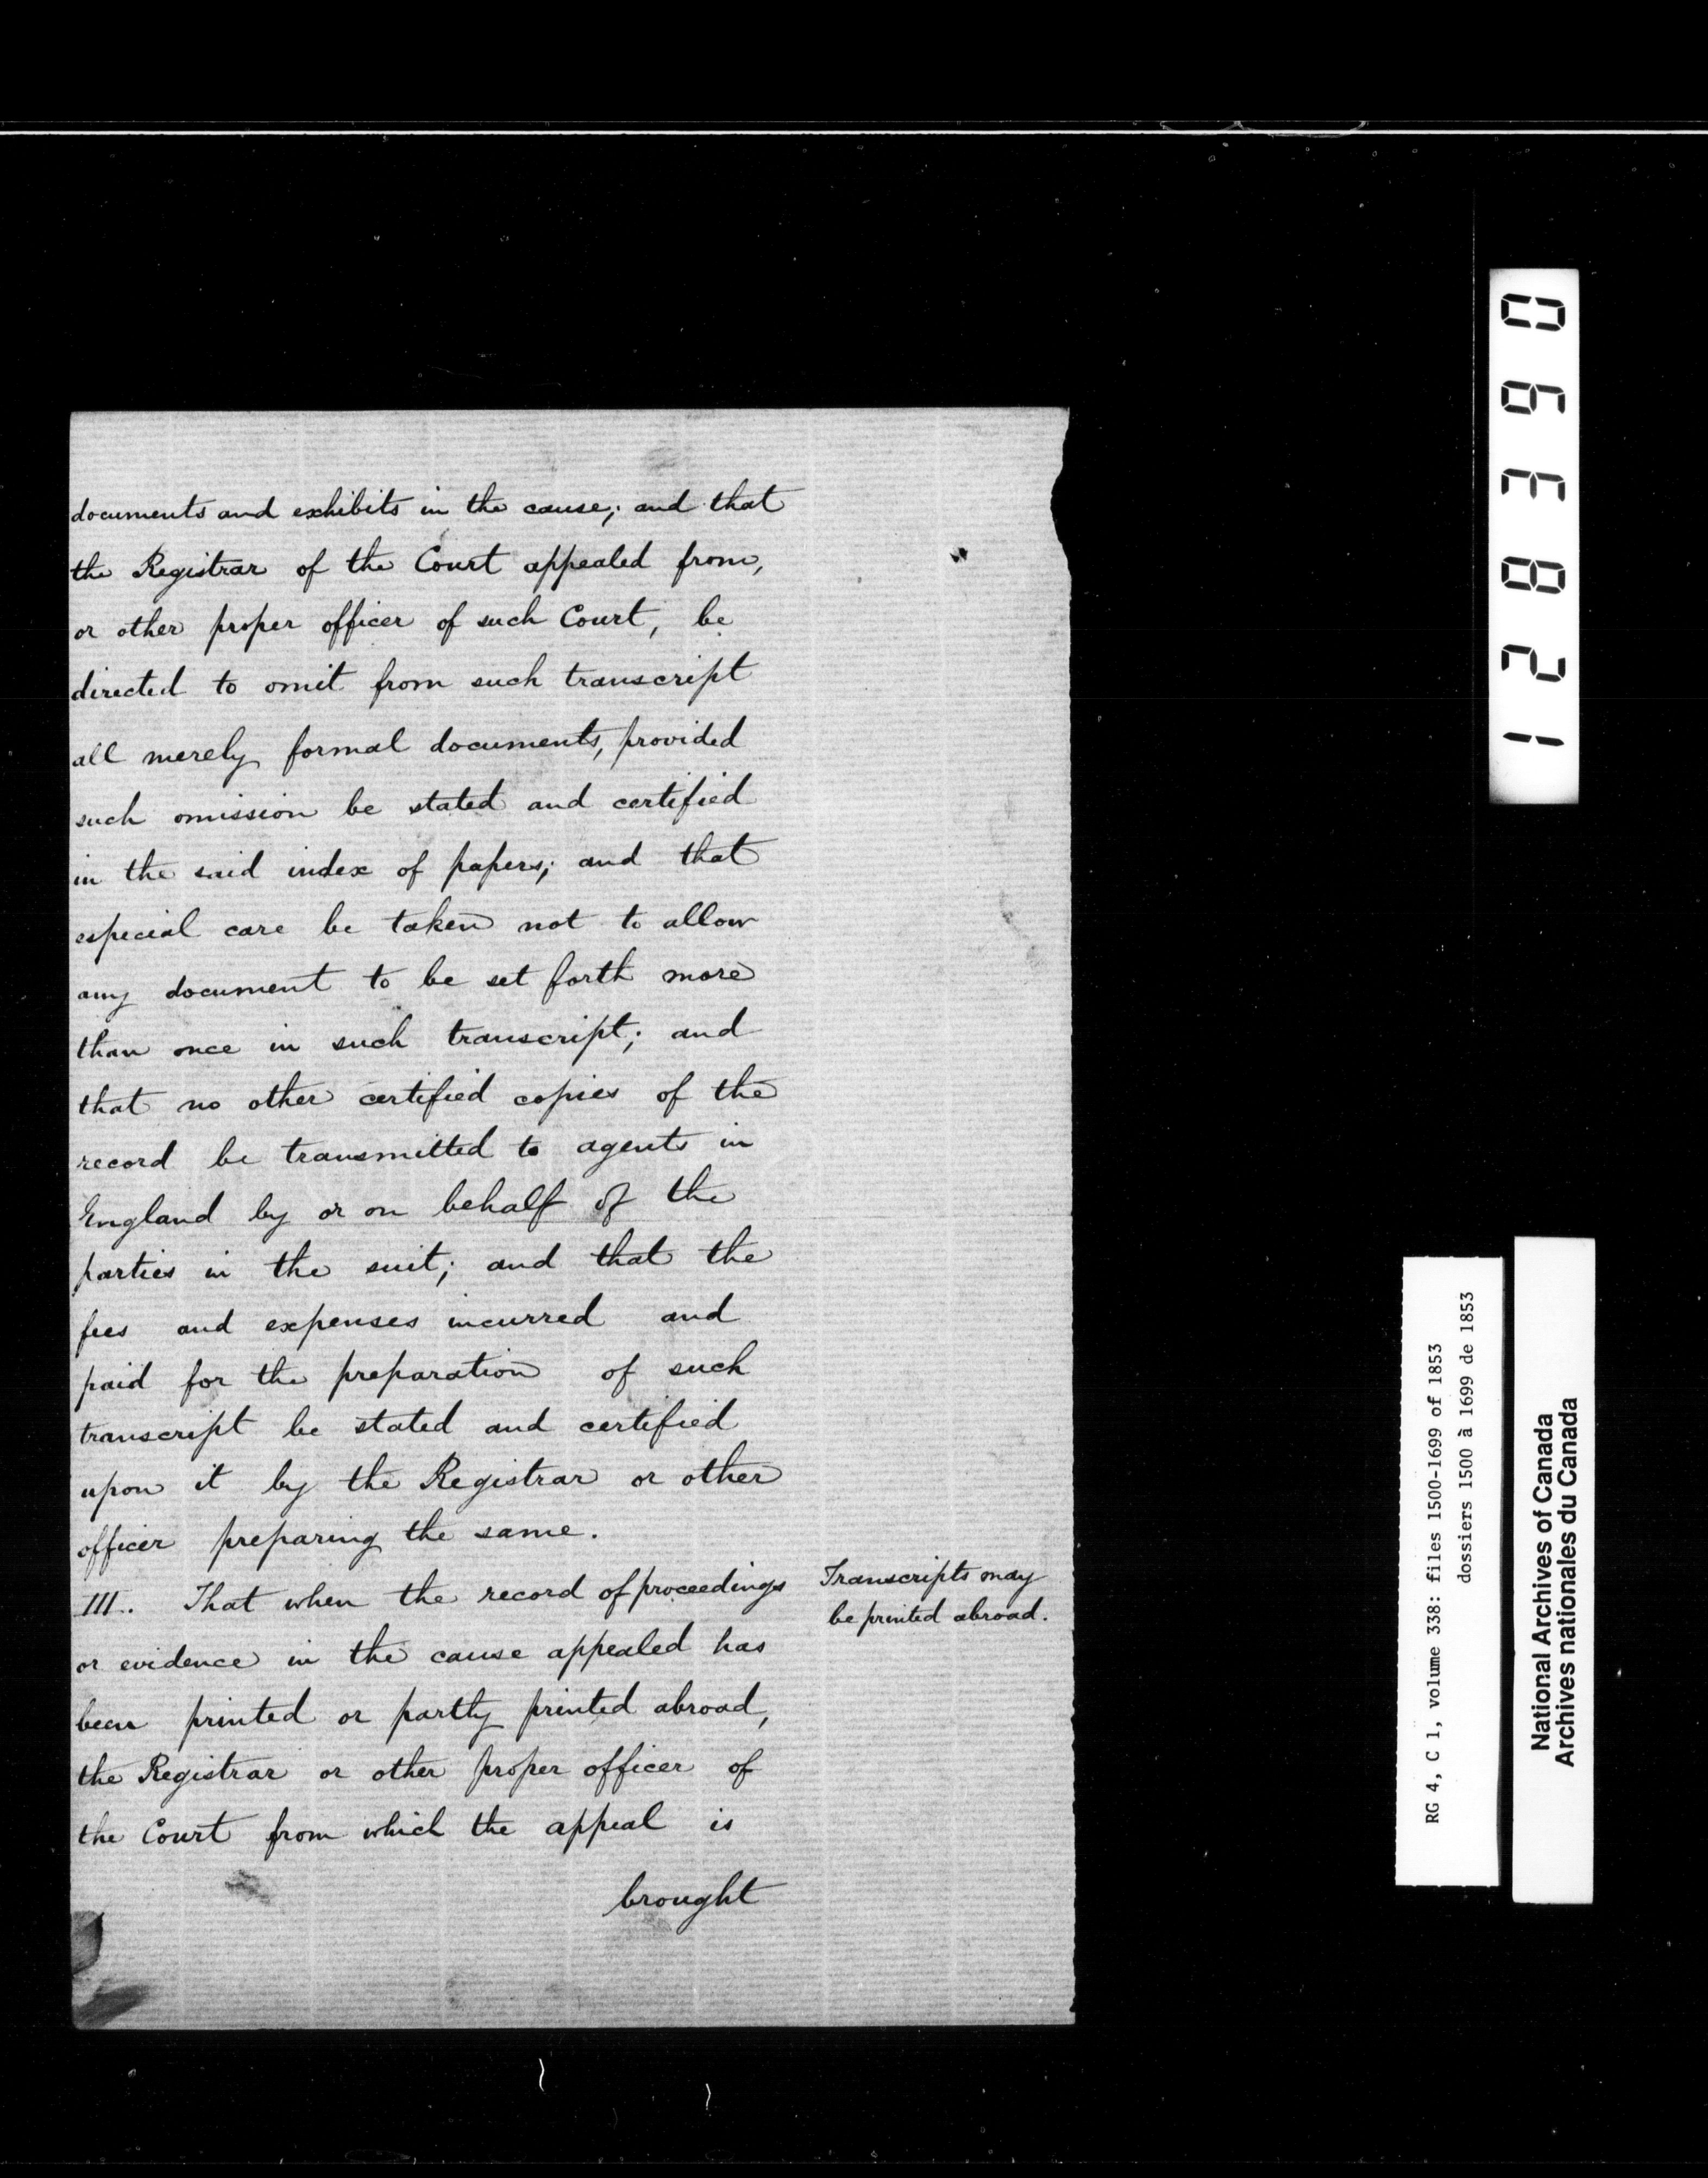 documents and exhibits in the cause; and that
the Registrar of the Court appealed from,
or other proper officer of such Court, be
directed to omit from such transcript
all merely formal documents, provided
such omission be stated and certified
in the said index of papers; and that
especial care be taken not to allow
any document to be set forth more
than once in such transcript; and
that no other certified copies of the
record be transmitted to agents in
England by or on behalf of the
parties in the suit; and that the
fees and expenses incurred and
paid for the preparation of such
transcript be stated and certified
upon it by the Registrar or other
officer preparing the same.
III. That when the record of proceedings
or evidence in the cause appealed has
been printed or partly printed abroad,
the Registrar or other proper officer of
the Court from which the appeal is
brought
Transcripts may
be printed abroad.
128360
RG 4, C 1, volume 338: files 1500-1699 of 1853
dossiers 1500 à 1699 de 1853
National Archives of Canada
Archives nationales du Canada